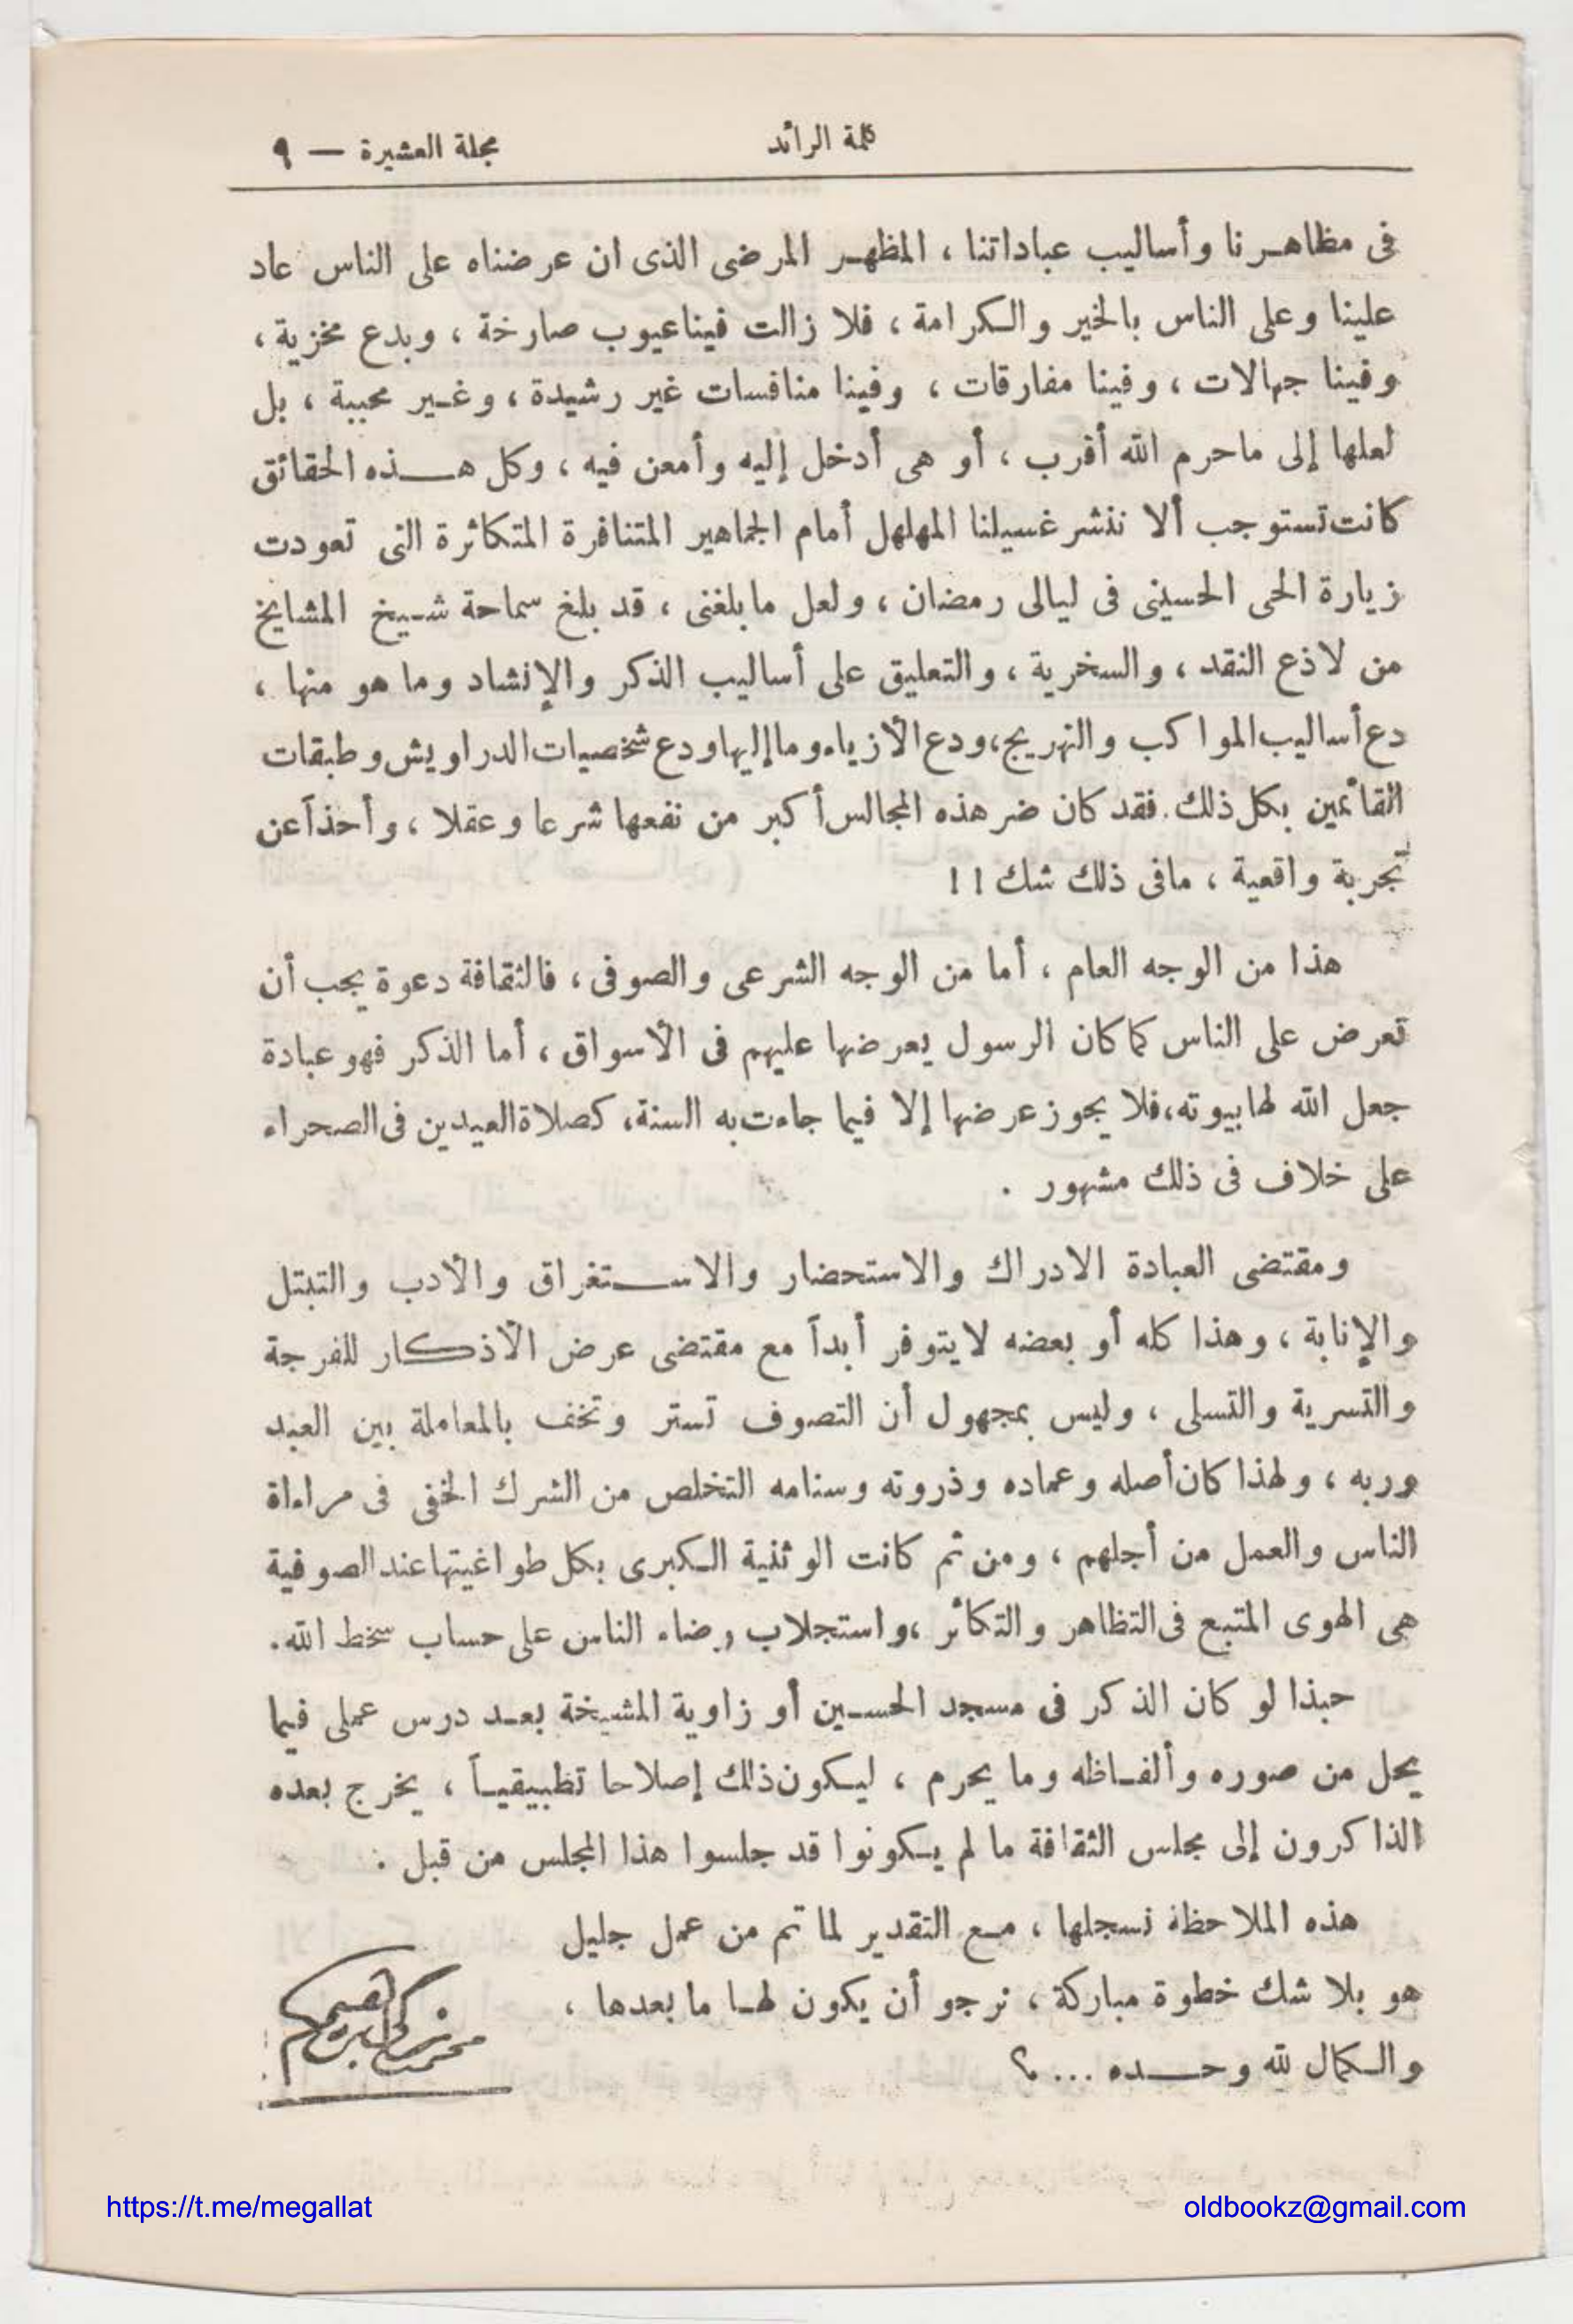 كلمة الرائد
مجلة العشيرة — ٩
فى مظاهرنا وأساليب عباداتنا ، المظهر المرضى الذى ان عرضناه على الناس عاد
علينا وعلى الناس بالخير والكرامة ، فلا زالت فينا عيوب صارخة ، وبدع مخزية ،
وفينا جهالات ، وفينا مفارقات ، وفينا منافسات غير رشيدة ، وغير محببة ، بل
لعلها إلى ماحرم الله أقرب ، أو هى أدخل إليه وأمعن فيه ، وكل هذه الحقائق
كانت تستوجب ألا ننشر غسيلنا المهلهل أمام الجماهير المتنافرة المتكاثرة التى تعودت
زيارة الحى الحسينى فى ليالى رمضان ، ولعل مابلغنى ، قد بلغ سماحة شيخ المشايخ
من لاذع النقد ، والسخرية ، والتعليق على أساليب الذكر والإنشاد وما هو منها ،
دع أساليب المواكب والتهريج، ودع الأزياء وما إليها ودع شخصيات الدراويش وطبقات
القائمين بكل ذلك . فقد كان ضر هذه المجالس أكبر من نفعها شرعا وعقلا ، وأخذاً عن
تجربة واقعية ، مافى ذلك شك ! !
هذا من الوجه العام ، أما من الوجه الشرعى والصوفى ، فالثقافة دعوة يجب أن
تعرض على الناس كما كان الرسول يعرضها عليهم فى الأسواق ، أما الذكر فهو عبادة
جعل الله لها بيوته، فلا يجوز عرضها إلا فيما جاءت به السنة، كصلاة العيدين فى الصحراء
على خلاف فى ذلك مشهور .
ومقتضى العبادة الادراك والاستحضار والاستغراق والأدب والتبتل
والإنابة ، وهذا كله أو بعضه لايتوفر أبداً مع مقتضى عرض الأذكار للفرجة
والتسرية والتسلى ، وليس بمجهول أن التصوف تستر وتخف بالمعاملة بين العبد
وربه ، ولهذا كان أصله وعماده وذروته وسنامه التخلص من الشرك الخفى فى مراءاة
الناس والعمل من أجلهم ، ومن ثم كانت الوثنية الكبرى بكل طواغيتها عند الصوفية
هى الهوى المتبع فى التظاهر والتكاثر ،واستجلاب رضاء الناس على حساب سخط الله.
حبذا لو كان الذكر فى مسجد الحسين أو زاوية المشيخة بعد درس عملى فيما
يحل من صوره وألفاظه وما يحرم ، ليكون ذلك إصلاحا تطبيقياً ، يخرج بعده
الذاكرون إلى مجلس الثقافة ما لم يكونوا قد جلسوا هذا المجلس من قبل .
هذه الملاحظة نسجلها ، مع التقدير لما تم من عمل جليل
هو بلا شك خطوة مباركة ، نرجو أن يكون لها ما بعدها ،
والكمال لله وحده ... ؟
محمد زكى ابراهيم
https://t.me/megallat
oldbookz@gmail.com